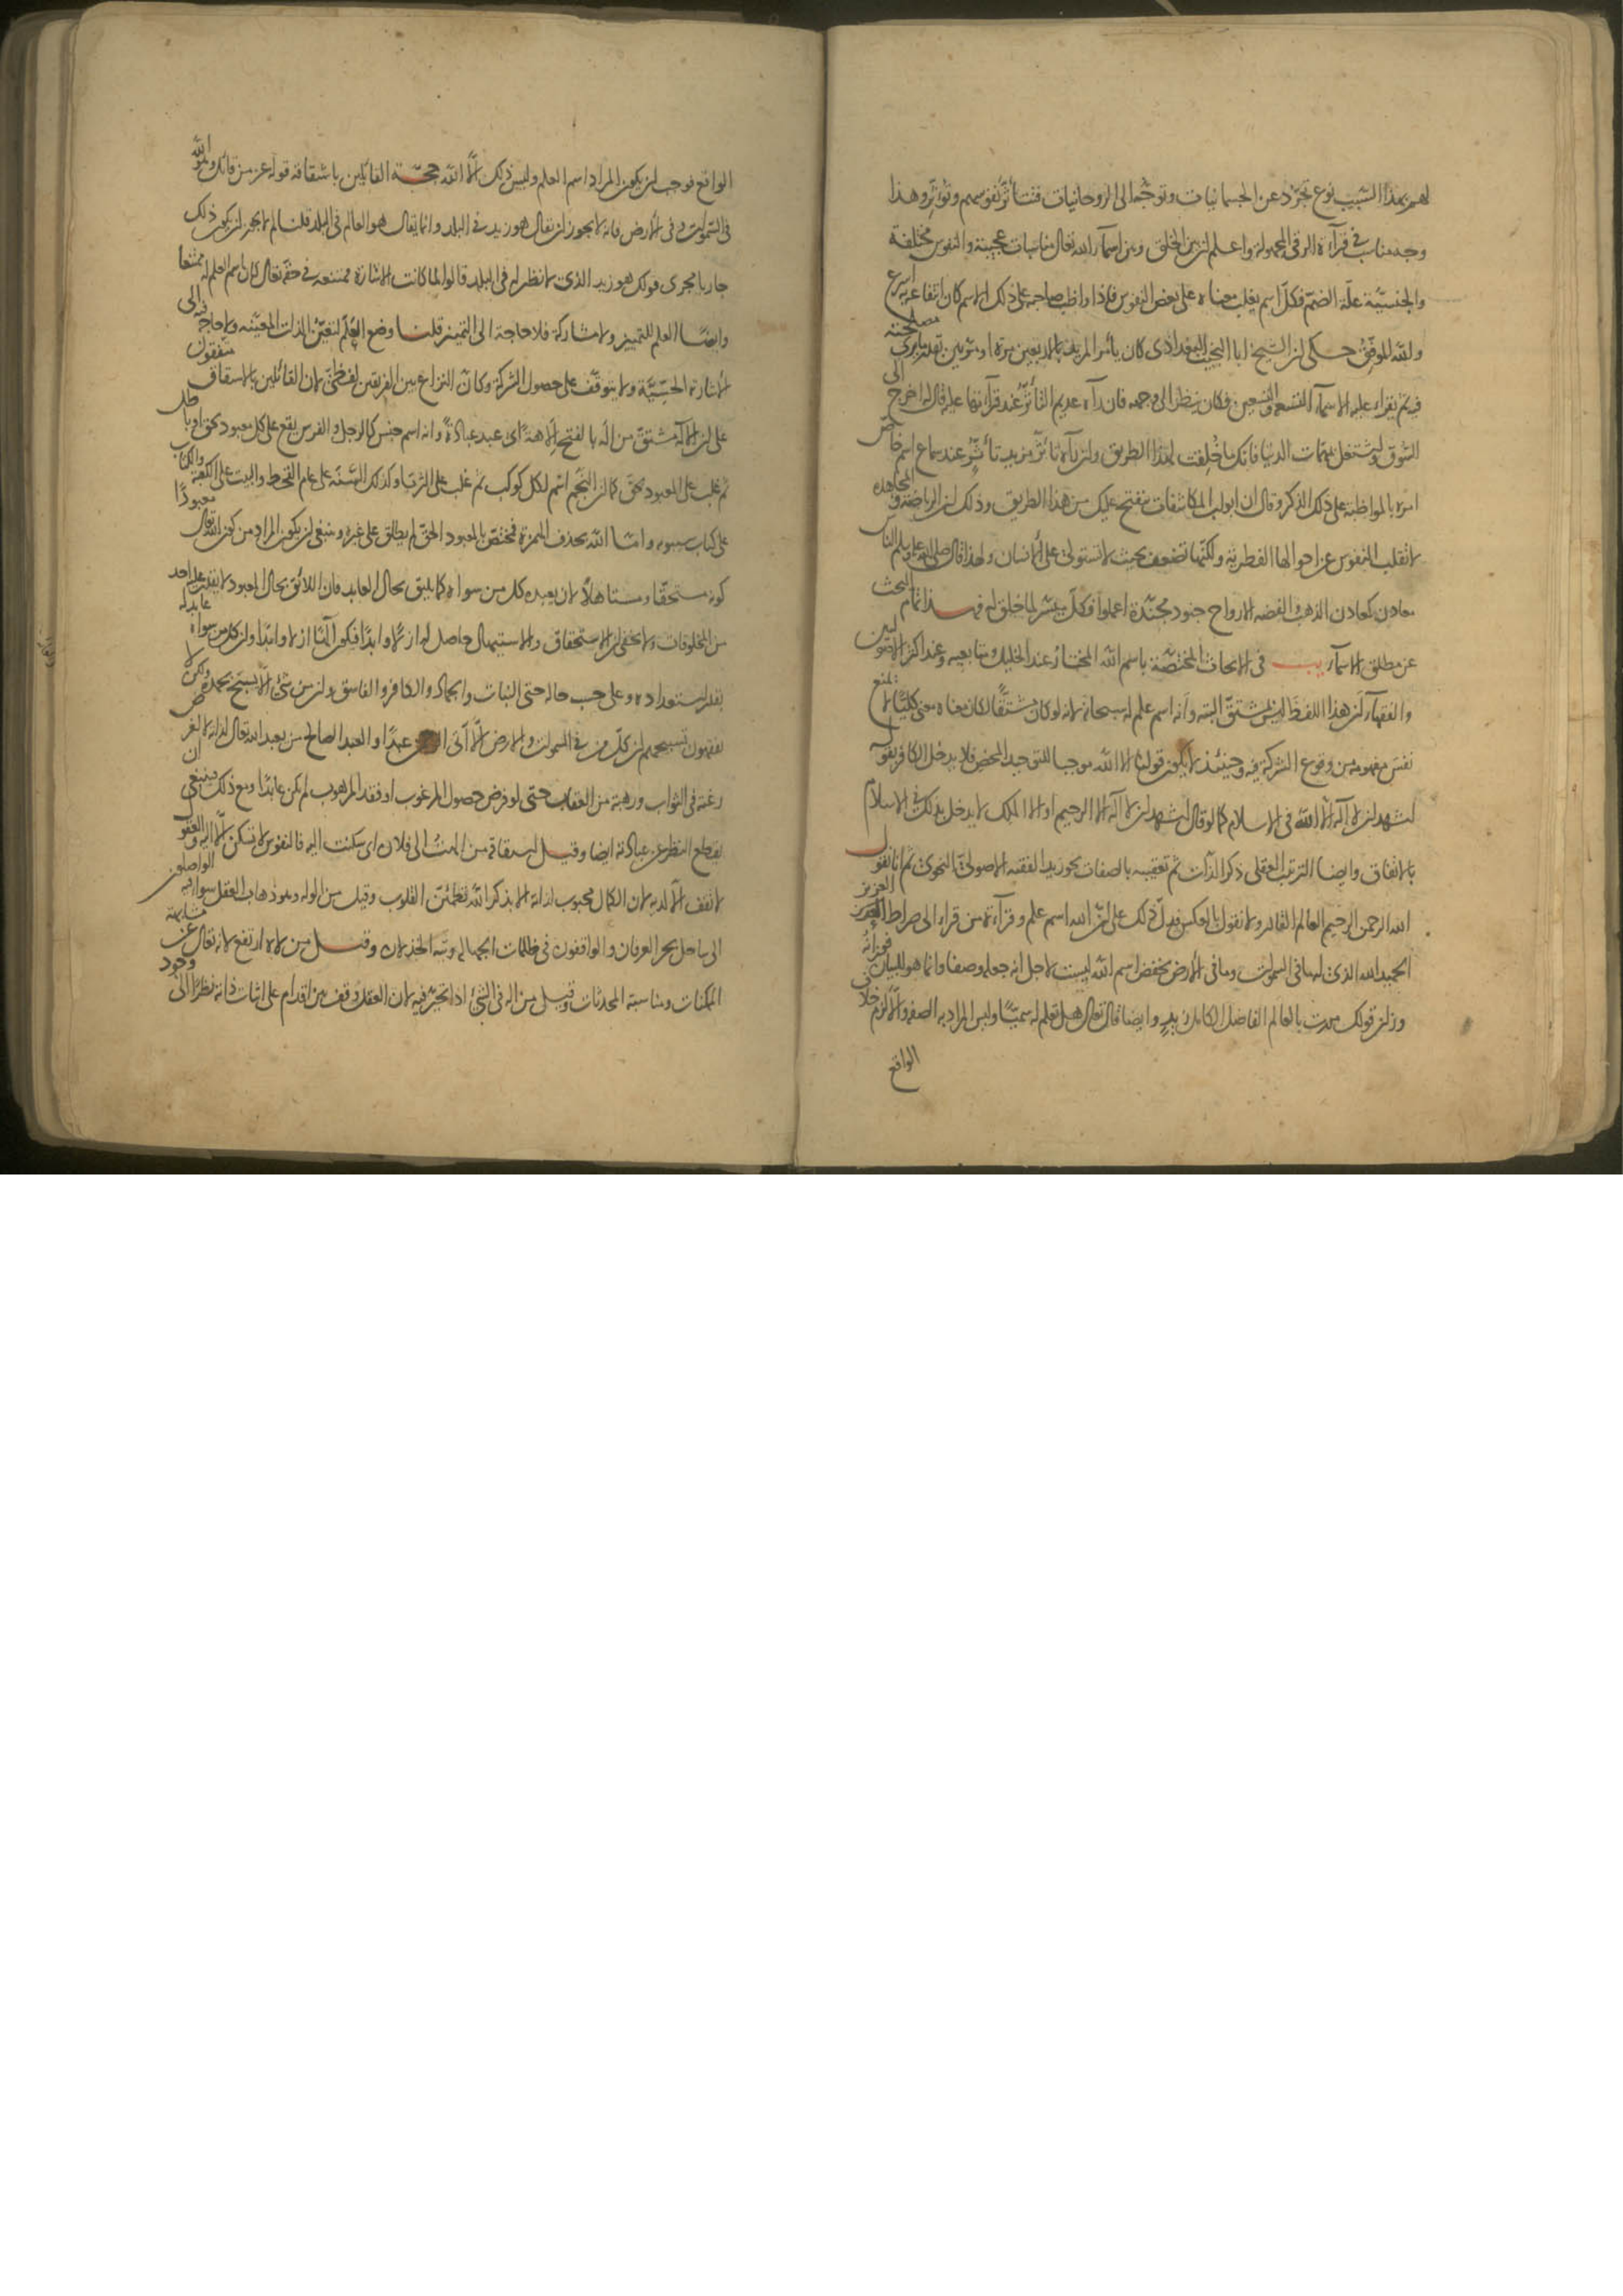 لهم بهذا السبب نوع تجرد عن الجسمانيات وتوجه الى الروحانيات فتتأثر نفوسهم وتؤثر وهذا
وجه مناسب فى قرآءة الرقى المجهولة واعلم ان بين الخلق وبين اسمآء الله تعالى مناسبات عجيبة والنفوس مختلفة
والجنسية علة الضم فكل اسم يغلب معناه على بعض النفوس فاذا واظب صاحبه على ذلك الاسم كان انتفاعه به اسرع
والله الموفق حكى ان الشيخ ابا النجيب البغدادى كان يأمر المريد بالاربعين مرة او مرتين بقدر ما يرى مصلحته
فيه ثم يقراء عليه الاسمآء التسعة والتسعين وكان ينظر الى وجهه فان رآه عديم التأثر عند قرآءتها عليه قال له اخرج الى
السوق واشتغل بمهمات الدنيا فانك ما خلقت لهذا الطريق وان رآه تأثر مزيد تأثر عند سماع اسم خاص
امره بالمواظبة على ذلك الذكر وقال ان ابواب المكاشفات تنفتح عليك من هذا الطريق وذلك ان الرياضة والمجاهدة
لا تقلب النفوس عن احوالها الفطرية ولكنها تضعف بحيث لا تستولى على الانسان ولهذا قال صلى الله عليه وسلم الناس
معادن كمعادن الذهب والفضة الارواح جنود مجندة اعملوا فكل ميسر لما خلق له فهذا تمام البحث
عن مطلق الاسمآء فى الابحاث المختصة باسم الله المختار عند الخليل ومتابعيه وعند اكثر الاصوليين
والفقهآء ان هذا اللفظ ليس بمشتق البتة وانه اسم علم له سبحانه لانه لو كان مشتقا لكان معناه معنى كليا لا يمنع
نفس مفهومه من وقوع الشركة فيه وحينئذ لا يكون قولنا لا اله الا الله موجبا للتوحيد المحض فلا يدخل الكافر بقوله
اشهد ان لا اله الا الله فى الاسلام كما لو قال اشهد ان لا اله الا الرحيم او الا الملك لا يدخل بذلك فى الاسلام
بالاتفاق وايضا الترتيب العقلى ذكر الذات ثم تعقيبه بالصفات نحو زيد الفقيه الاصولى النحوى ثم انا نقول
الله الرحمن الرحيم العالم القادر ولا نقول بالعكس فدل ذلك على ان الله اسم علم وقرآءة من قراء الى صراط العزيز
الحميد الله الذى له ما فى السموات وما فى الارض بخفض اسم الله ليست لاجل انه جعله وصفا وانما هو للبيان فوزانه
وزان قولك مررت بالعالم الفاضل الكامل زيد وايضا قال تعالى هل تعلم له سميا وليس المراد به الصفة والا لزم خلاف
الواقع
الواقع فوجب ان يكون المراد اسم العلم وليس ذلك الا الله حجة القائلين باشتقاقه قوله عز من قائل وهو الله
فى السموات وفى الارض فانه لا يجوز ان يقال هو زيد فى البلد وانما يقال هو العالم فى البلد قلنا لم لا يجوز ان يكون ذلك
جاريا مجرى قولك هو زيد الذى لا نظير له فى البلد قالوا لما كانت الاشارة ممتنعة فى حقه تعالى كان اسم العلم له ممتنعا
وايضا العلم للتمييز ولا مشاركة فلا حاجة الى التمييز قلنا وضع العلم لتعين الذات المعينة ولا حاجة فيه الى
الاشارة الحسية ولا يتوقف على حصول الشركة وكان النزاع بين الفريقين لفظى لان القائلين بالاشتقاق متفقون
على ان الاله مشتق من اله بالفتح الاهة اى عبد عبادة وانه اسم جنس كالرجل والفرس يقع على كل معبود بحق او باطل
ثم غلب على المعبود بحق كما ان النجم اسم لكل كوكب ثم غلب على الثريا وكذلك السنة على عام القحط والبيت على الكعبة والكتاب
على كتاب سيبويه واما الله بحذف الهمزة فمختص بالمعبود الحق لم يطلق على غيره وينبغى ان يكون المراد من كون الله تعالى معبودا
كونه مستحقا ومستاهلا لان يعبده كل من سواه كما يليق بحال العابد فان اللائق بحال المعبود لا يقدر عليه احد
من المخلوقات ولا يخفى ان الاستحقاق والاستيهال حاصل له ازلا وابدا فيكون الها ازلا وابدا وان كل من سواه عابد له
بقدر استعداده وعلى حسب حاله حتى النبات والجماد والكافر والفاسق وان من شئ الا يسبح بحمده ولكن لا
تفقهون تسبيحهم ان كل من فى السموات والارض الا آتى الرحمن عبدا والعبد الصالح من يعبد الله تعالى لذاته لا لغرض
رغبة فى الثواب ورهبة من العقاب حتى لو فرض حصول المرغوب او فقد المرهوب لم يكن عابدا ومع ذلك فينبغى ان
يقطع النظر عن عبادته ايضا وقيل اشتقاقه من الهت الى فلان اى سكنت اليه فالنفوس لا تسكن الا اليه والعقول
لا تقف الا لديه لان الكمال محبوب لذاته الا بذكر الله تطمئن القلوب وقيل من الوله وهو ذهاب العقل سواء فيه الواصلون
الى ساحل بحر العرفان والواقفون فى ظلمات الجهالة وتيه الخذلان وقيل من لاه ارتفع لانه تعالى عن مشابهة
الممكنات ومناسبة المحدثات وقيل من اله فى الشئ اذا تحير فيه لان العقل وقف بين اقدام على اثبات ذاته نظرا الى وجود